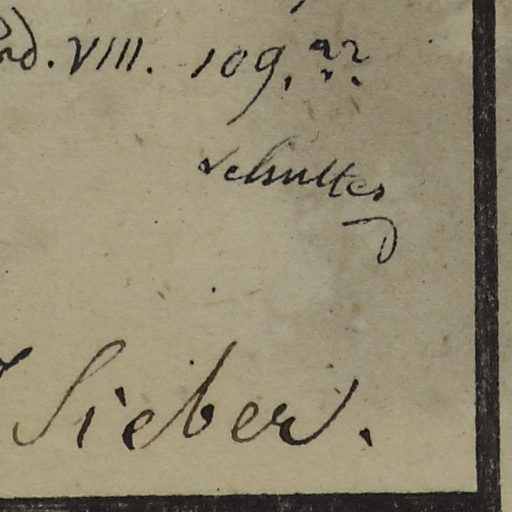 rd. VIII. 109.??
Schultes
D
Sieber.